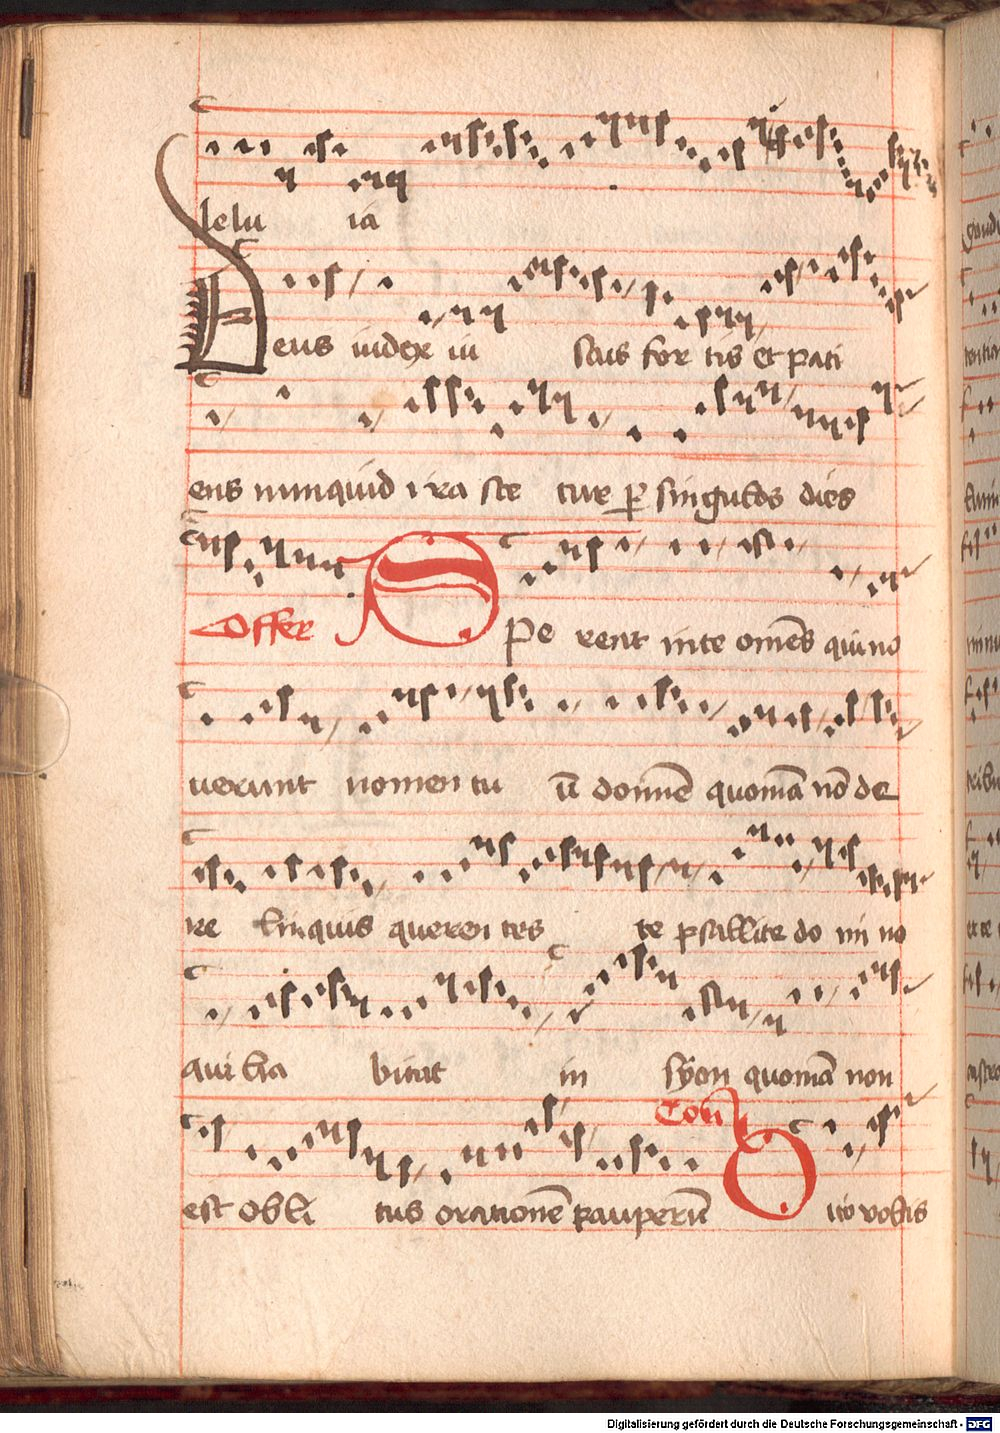 lelu ia
Deus iudex iu stus for tis et pati
ens nunquid i ra sce tur p singulos dies
Offer SPe rent in te omēs qui no
uerunt nomen tu ū domīe quoniā nō de
re linquis queren tes te psallite do mi no
qui ha bitat in syon quoniā non
Coīo
est obli tus orationē pauperū Dico vobis
Digitalisierung gefördert durch die Deutsche Forschungsgemeinschaft - DFG